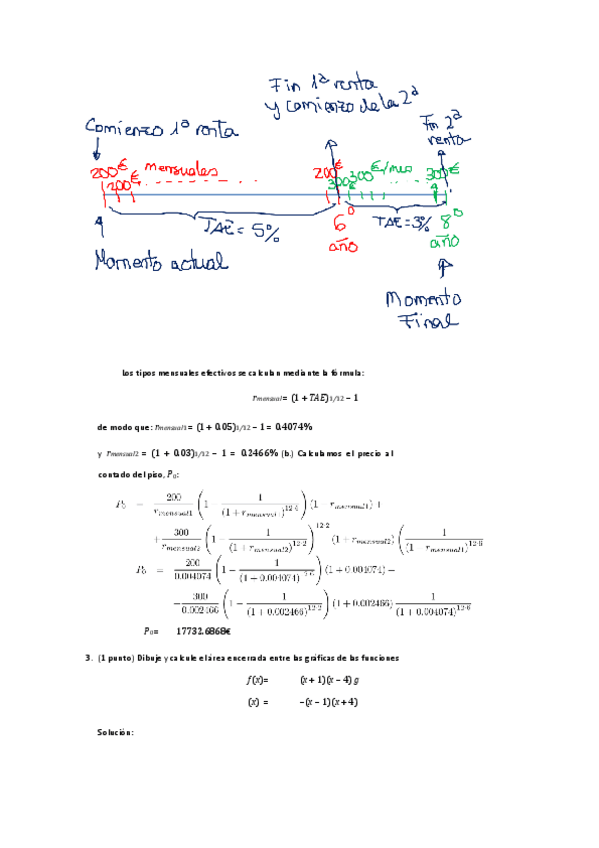 Fin 1ª renta
y comienzo de la 2ª
Comienzo 1ª renta
Fin 2ª
renta
200€ mensuales 200€ 300€/mes 300€
200€ 300€
TAE = 5% 6º TAE=3% 8º
año año
Momento actual
Momento
Final
Los tipos mensuales efectivos se calculan mediante la fórmula:
rmensual= (1 + TAE)1/12 – 1
de modo que: rmensual1= (1 + 0.05)1/12 – 1 = 0.4074%
y rmensual2 = (1 + 0.03)1/12 – 1 = 0.2466% (b.) Calculamos el precio al
contado del piso, P0:
P0 = 200/rmensual1 (1 − 1/(1 + rmensual1)^12·6) (1 + rmensual1) +
+ 300/rmensual2 (1 − 1/(1 + rmensual2)^12·2)^12·2 (1 + rmensual2) (1/(1 + rmensual1)^12·6
P0 = 200/0.004074 (1 − 1/(1 + 0.004074)^12·6) (1 + 0.004074) +
+ 300/0.002466 (1 − 1/(1 + 0.002466)^12·2) (1 + 0.002466) 1/(1 + 0.004074)^12·6
P0= 17732.6868€
3. (1 punto) Dibuje y calcule el área encerrada entre las gráficas de las funciones
f(x)= (x + 1)(x – 4) g
(x) = –(x – 1)(x + 4)
Solución: